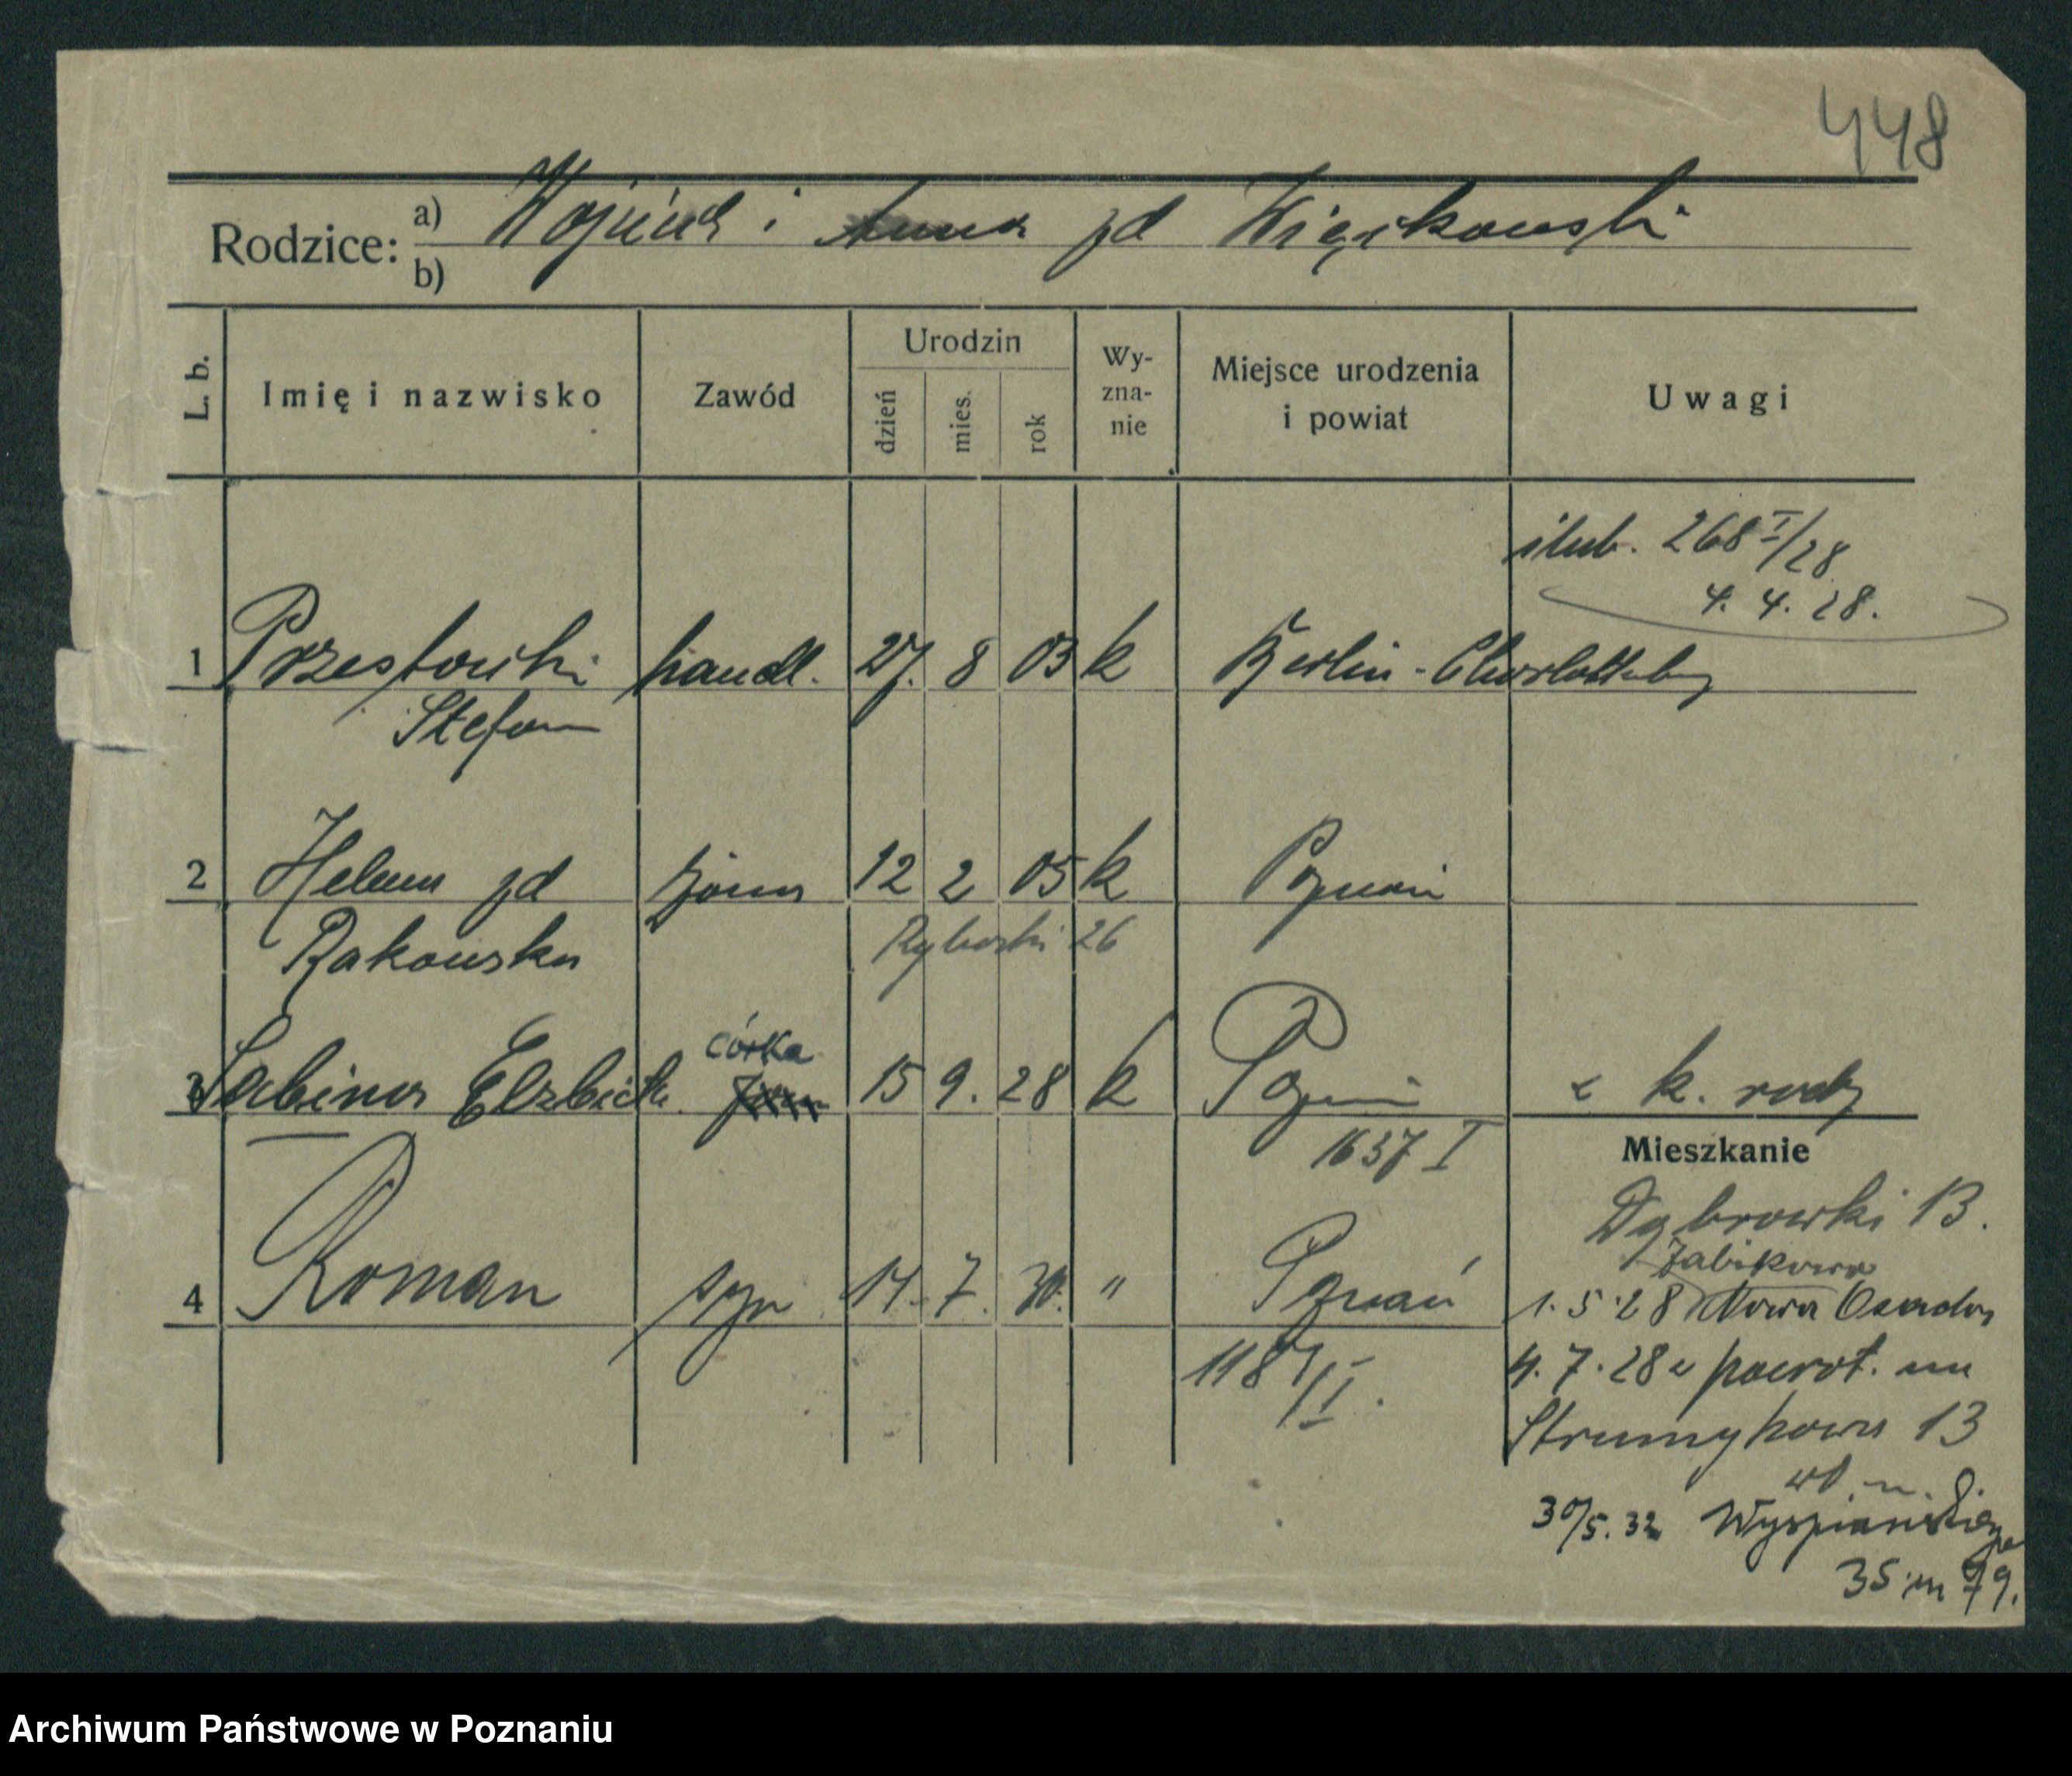 448
Rodzice: a) Wojciech i Anna zd Więckowski
b)
L. b. Imię i nazwisko Zawód Urodzin dzień mies. rok Wy-zna-nie Miejsce urodzenia i powiat Uwagi
ślub. 268 I/28
4. 4. 28.
1 handl. 27. 8 03 k Berlin-Charlottenburg
Stefan
2 Helena zd żona 12 2 05 k Poznań
Bakowska 26
córka
3 Sabina Elżbieta 15 9. 28 k Poznań k. rodz
1637 I
Mieszkanie
Dąbrowski 13.
Żabikowo
4 Roman syn 14. 7. 30. " Poznań 1. 5. 28 Nowa Osada
1187/I. 4. 7. 28 z powrot. na
Strumykowa 13
30/5. 32 Wyspiańskiego
35 m 79.
Archiwum Państwowe w Poznaniu